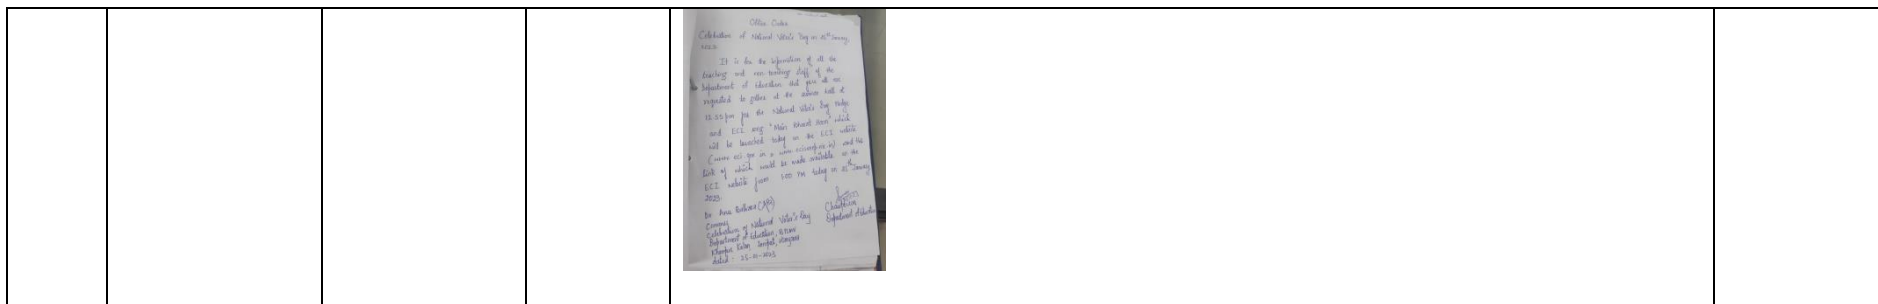 Office Order
Celebration of National Voter's Day on 25th January,
2023
It is for the information of all the
teaching and non-teaching staff of the
Department of Education that you all are
requested to gather at the seminar hall at
12.55 pm for the National Voter's Day Pledge
and ECI song "Main Bharat Hoon" which
will be launched today on the ECI website
and the
link of which would be made available on the
ECI website from 1:00 PM today on 25th January
2023.
Dr
Convener
Chairperson
Celebration of National Voter's Day
Department of Education
Department of Education,
Khanpur Kalan, Sonipat, Haryana
dated: 25-01-2023